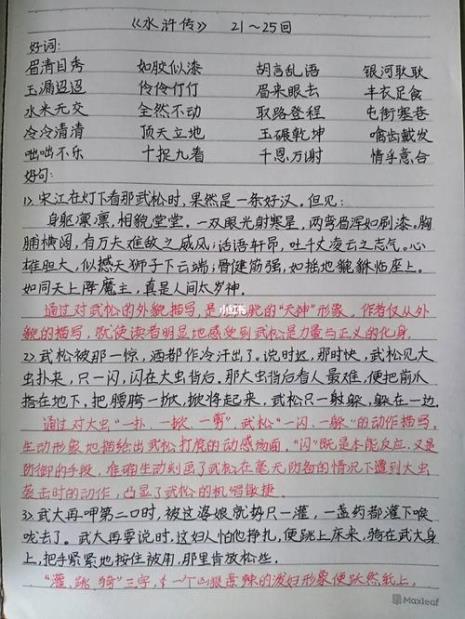 《水浒传》 21～25回
好词:
眉清目秀 如胶似漆 胡言乱语 银河耿耿
玉漏迢迢 伶伶仃仃 眉来眼去 丰衣足食
水米无交 全然不动 取路登程 屯街塞巷
冷冷清清 顶天立地 玉碾乾坤 噙齿戴发
咄咄不乐 十捉九着 千恩万谢 情孚意合
好句:
1》宋江在灯下看那武松时,果然是一条好汉。但见:
身躯凛凛,相貌堂堂。一双眼光射寒星,两弯眉浑如刷漆。胸
脯横阔,有万夫难敌之威风;话语轩昂,吐千丈凌云之志气。心
雄胆大,似撼天狮子下云端;骨健筋强,如摇地貔貅临座上。
如同天上降魔主,真是人间太岁神。
通过对武松的外貌描写,是 的"天神"形象,作者仅从外
貌的描写,就使读者明显地感受到武松是力量与正义的化身。
2》武松被那一惊,酒都作冷汗出了。说时迟,那时快,武松见大
虫扑来,只一闪,闪在大虫背后。那大虫背后看人最难,便把前爪
搭在地下,把腰胯一掀,掀将起来,武松只一躲,躲在一边。
通过对大虫"一扑,一掀,一剪",武松"一闪,一躲"的动作描写,
生动形象地描绘出武松打虎的动感场面,"闪"既是本能反应,又是
防御的手段,准确生动刻画了武松在毫无防备的情况下遭到大虫
袭击时的动作,凸显了武松的机智敏捷。
3》武大再呷第二口时,被这婆娘就势只一灌,一盏药都灌下喉
咙去了。武大再要说时,这妇人怕他挣扎,便跳上床来,骑在武大身
上,把手紧紧地按住被角,那里肯放松些。
"灌,跳,骑"三字,一个凶狠毒辣的泼妇形象便跃然纸上。
Maxleaf